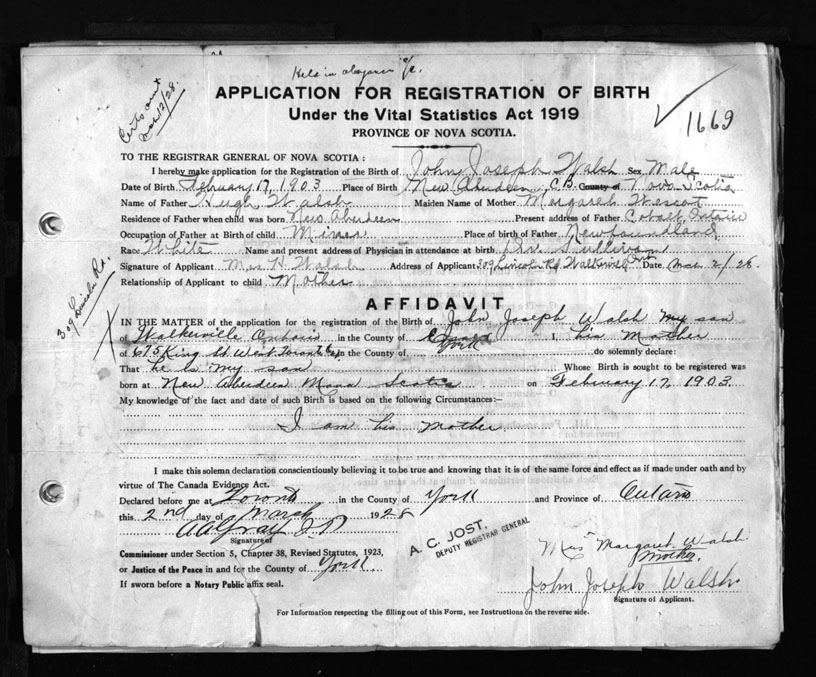 Held in
APPLICATION FOR REGISTRATION OF BIRTH
Under the Vital Statistics Act 1919
PROVINCE OF NOVA SCOTIA.
1669
Certs sent
Mar 12/28.
TO THE REGISTRAR GENERAL OF NOVA SCOTIA:
I hereby make application for the Registration of the Birth of John Joseph Walsh Sex Male
Date of Birth February 17, 1903 Place of Birth New Aberdeen, C.B. County of Nova Scotia
Name of Father Hugh Walsh Maiden Name of Mother Margaret Wescott
Residence of Father when child was born New Aberdeen Present address of Father Cobalt, Ontario
Occupation of Father at Birth of child Miner Place of birth of Father Newfoundland
Race White Name and present address of Physician in attendance at birth Dr. Sullivan
Signature of Applicant Mrs H. Walsh Address of Applicant 309 Lincoln Rd Walkerville Ont Date Mch 2/28.
Relationship of Applicant to child Mother
309 Lincoln Rd.
AFFIDAVIT
IN THE MATTER of the application for the registration of the Birth of John Joseph Walsh my son
of Walkerville Ontario in the County of York I, his Mother
of 675 King St. West Toronto in the County of do solemnly declare:
That he is my son Whose Birth is sought to be registered was
born at New Aberdeen Nova Scotia on February 17, 1903.
My knowledge of the fact and date of such Birth is based on the following Circumstances:—
I am his mother.
I make this solemn declaration conscientiously believing it to be true and knowing that it is of the same force and effect as if made under oath and by
virtue of The Canada Evidence Act.
Declared before me at Toronto in the County of York and Province of Ontario
this 2nd day of March 1928
A A Gray J.P.
Signature of
A. C. JOST,
DEPUTY REGISTRAR GENERAL
Commissioner under Section 5, Chapter 38, Revised Statutes, 1923,
or Justice of the Peace in and for the County of York.
If sworn before a Notary Public affix seal.
Mrs Margaret Walsh
Mother.
John Joseph Walsh
Signature of Applicant.
For Information respecting the filling out of this Form, see Instructions on the reverse side.